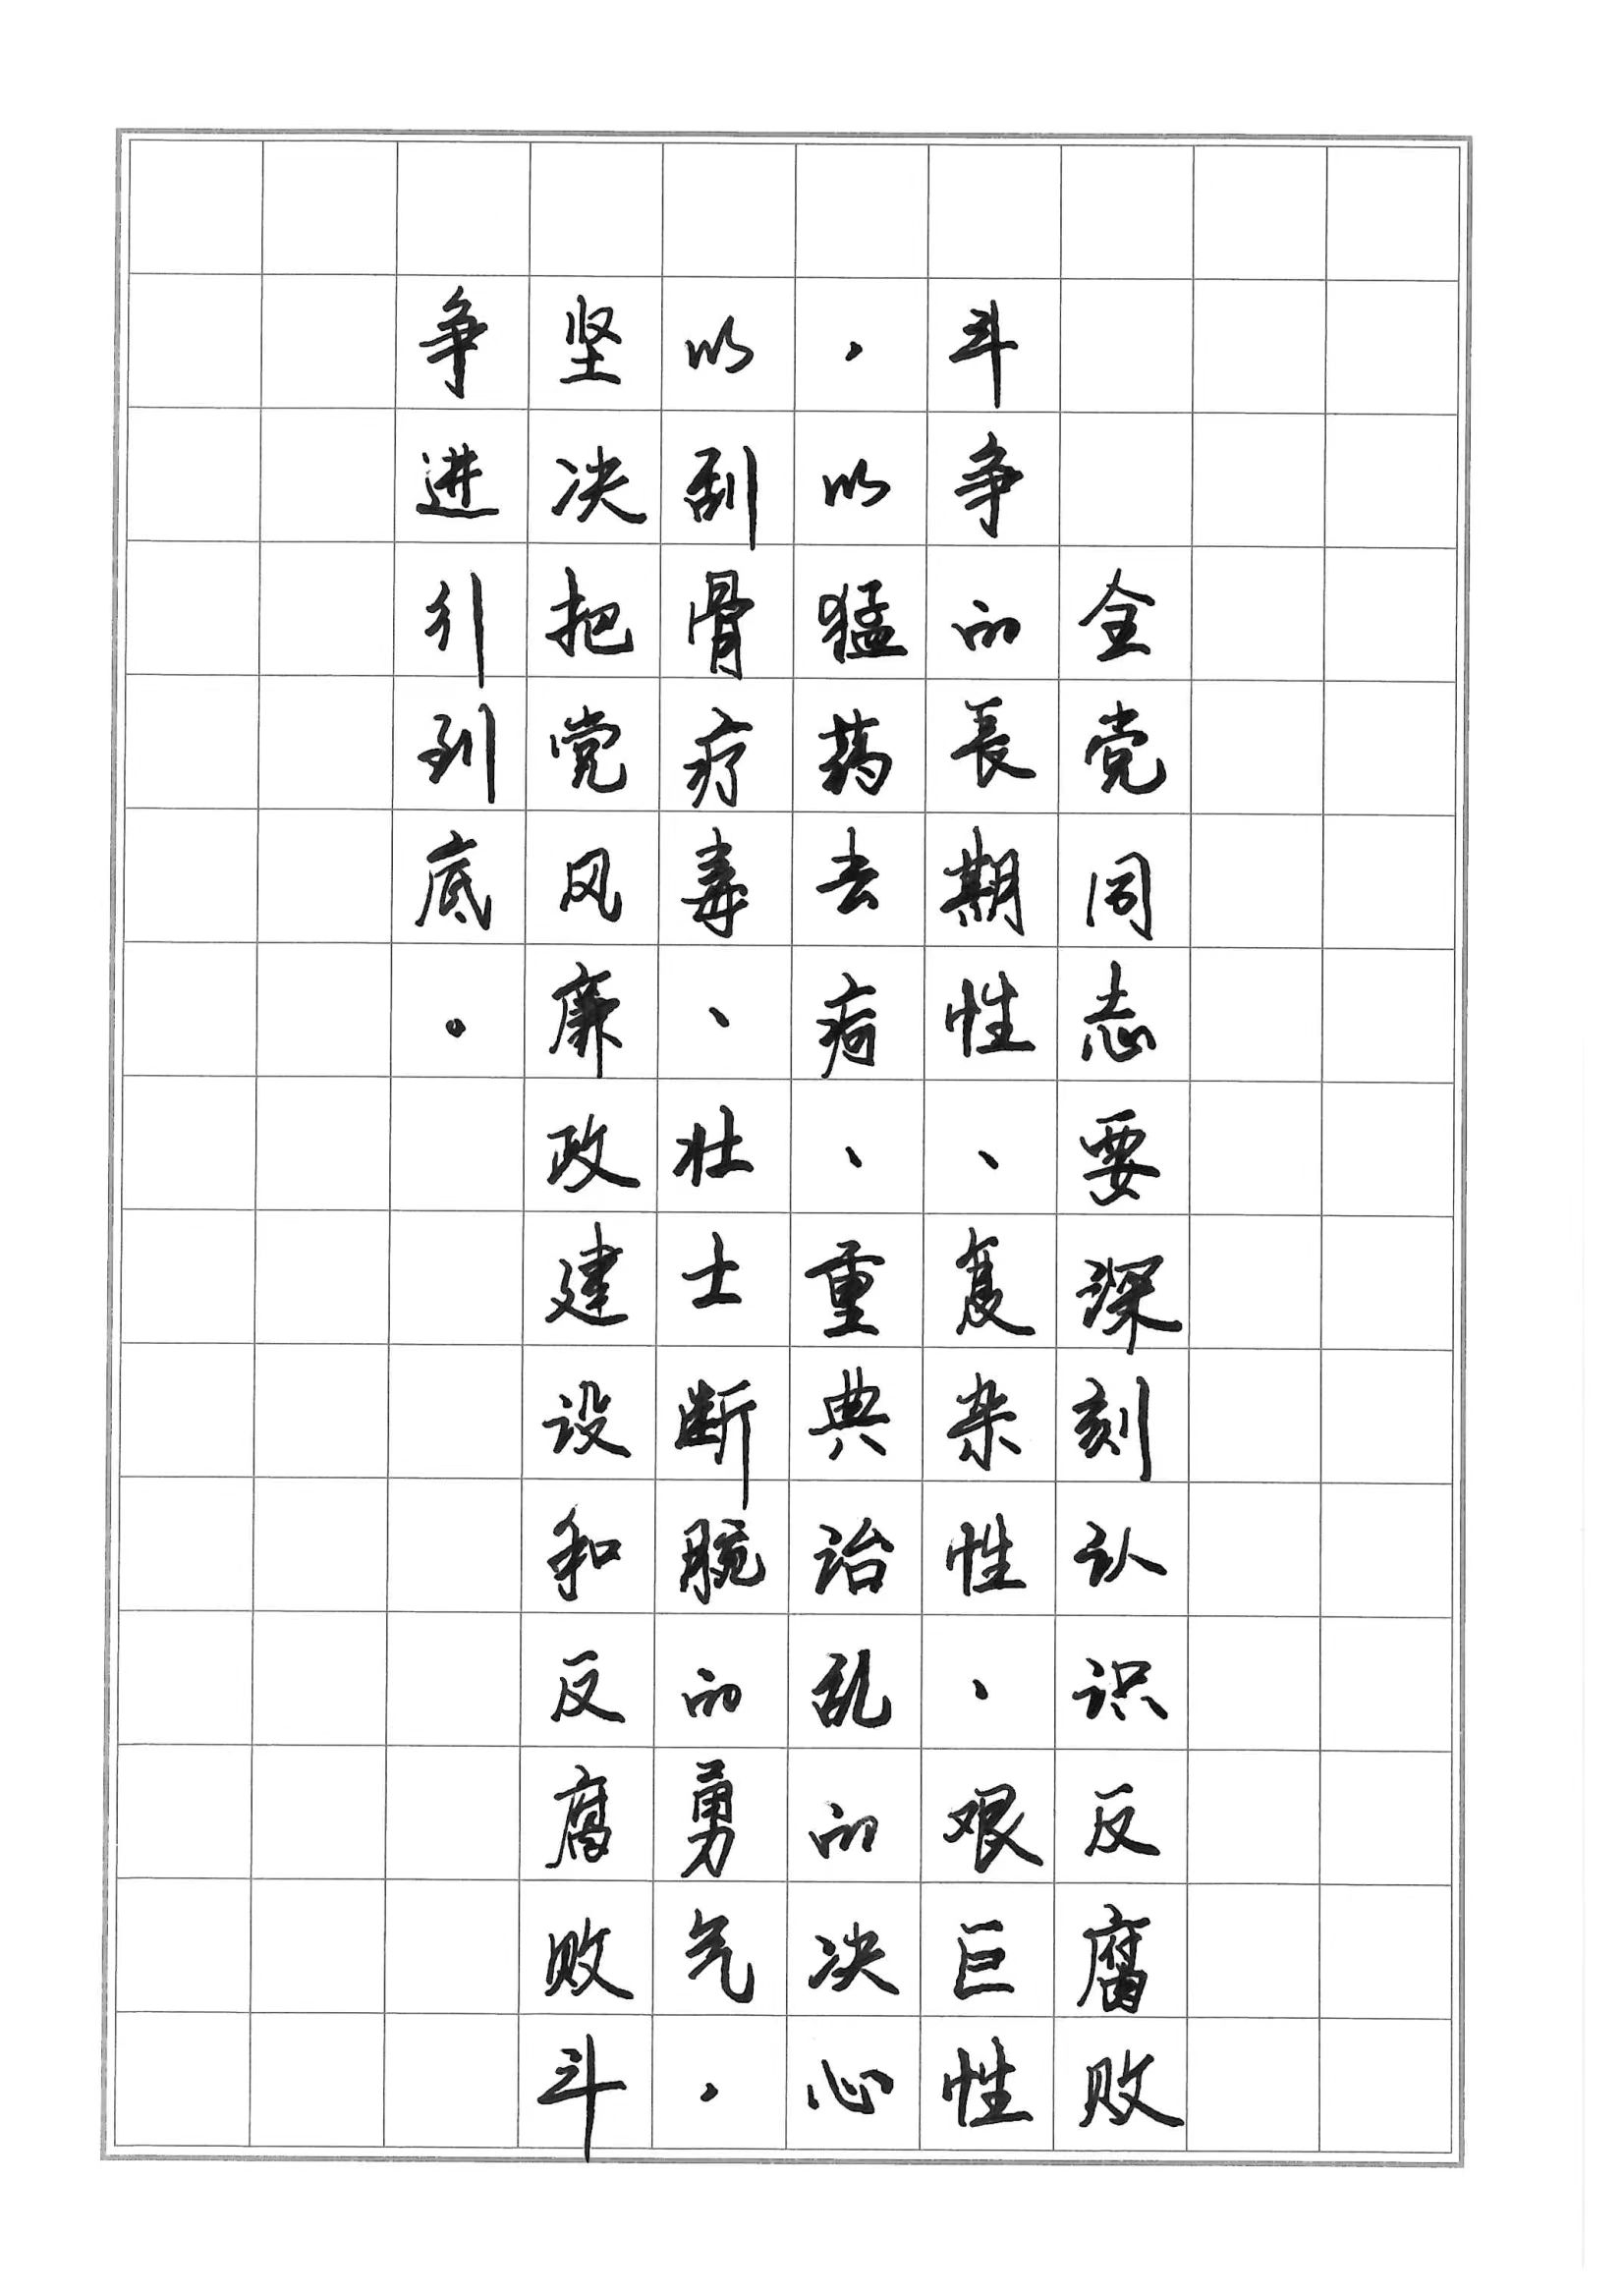 全党同志要深刻认识反腐败
斗争的長期性、复杂性、艰巨性
，以猛药去疴、重典治乱的决心，
以刮骨疗毒、壮士断腕的勇气，
坚决把党风廉政建设和反腐败斗
争进引到底。